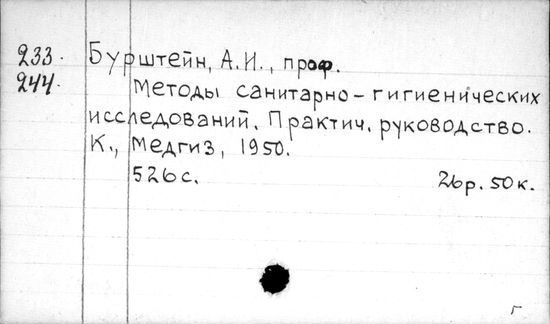 233. Бурштейн, А.И., проф.
244. Методы санитарно-гигиенических
исследований. Практич. руководство.
К., Медгиз, 1950.
526с. 26р. 50к.
г